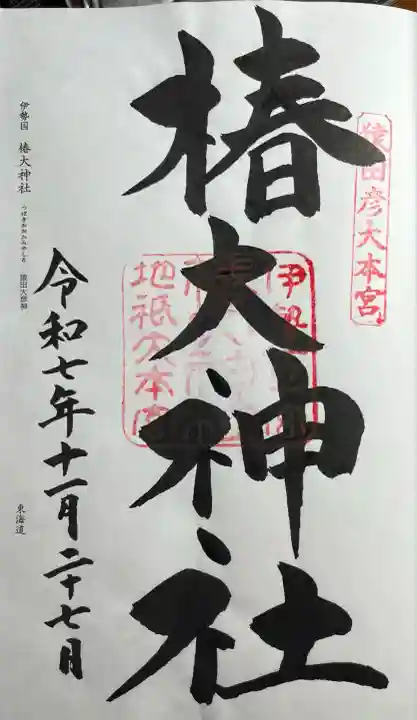 猿田彦大本宮
椿大神社
地祇大本宮
令和七年十一月二十七日
伊勢国 椿大神社 つばきおおかみやしろ 猿田彦大神
東海道